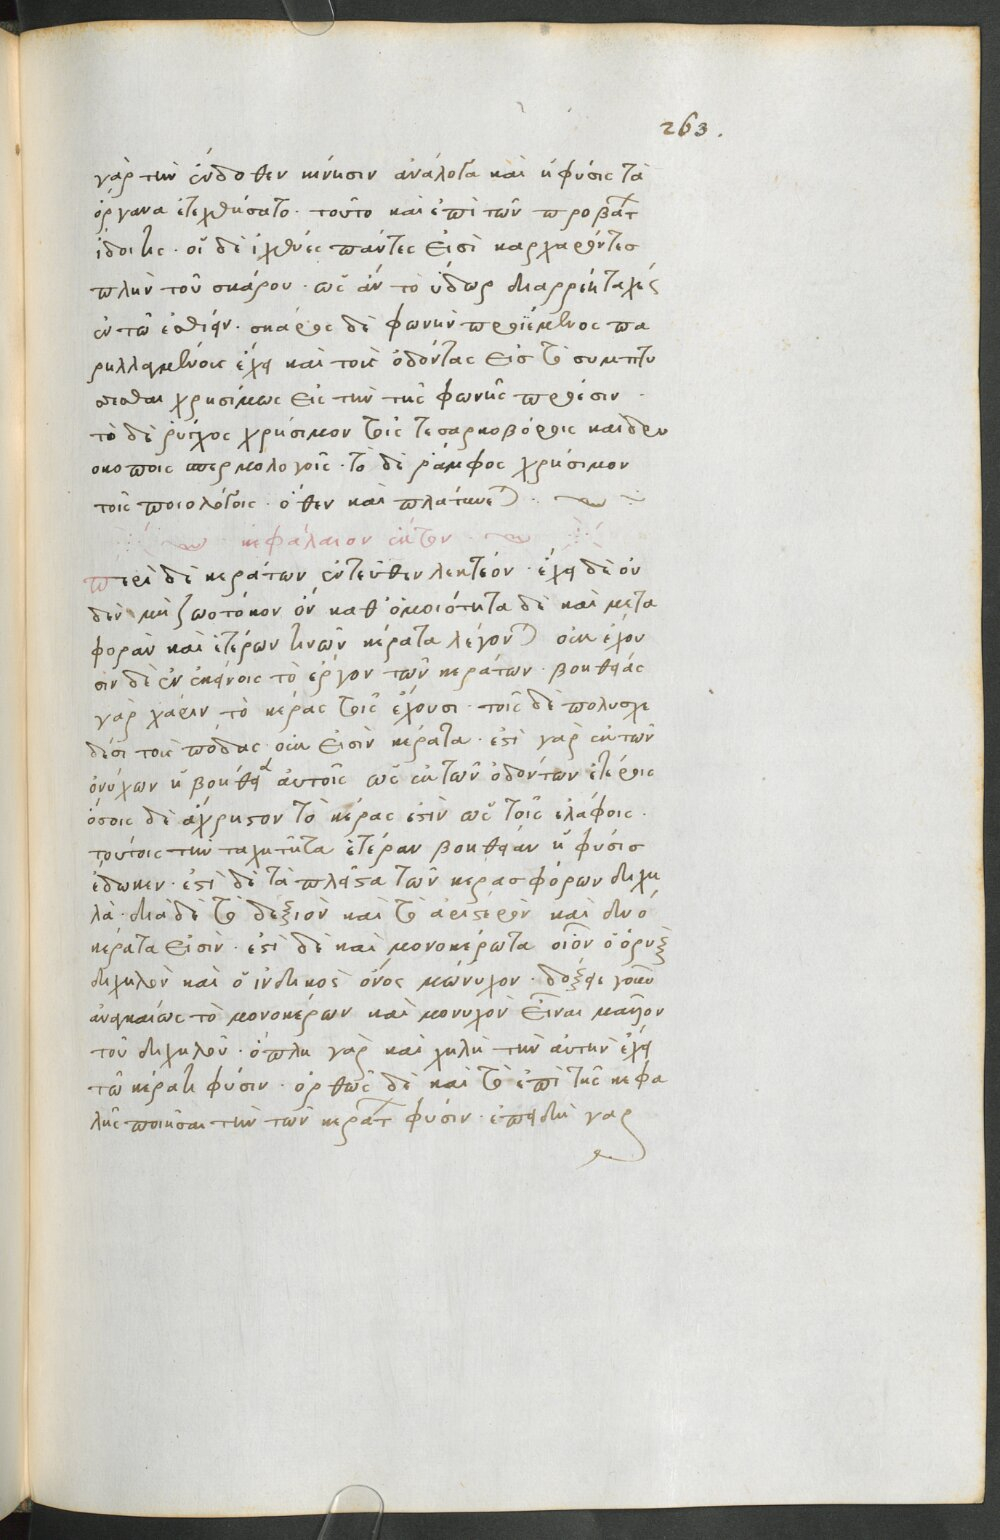 263.
γὰρ τὴν ἔνδοθεν κίνησιν ἀνάλογα καὶ ἡ φύσις τὰ
ὄργανα ἐτεχνήσατο. τοῦτο καὶ ἐπὶ τῶν προβατ
ἴδοι τις. οἱ δὲ ἰχθύες πάντες εἰσὶ καρχαρόντες
πλὴν τοῦ σκάρου. ὡς ἂν τὸ ὕδωρ
ἐν τῶ ἐσθίειν. σκάρος δὲ φωνὴν προϊέμενος πα
ρηλλαγμένους ἔχει καὶ τοὺς ὀδόντας εἰς τὸ συμπτύ
σεσθαι χρησίμως εἰς τὴν τῆς φωνῆς πρόεσιν.
τὸ δὲ ῥύγχος χρήσιμον τοῖς τε σαρκοβόροις καὶ δρυ
οκόποις σπερμολόγοις. τὸ δὲ ῥάμφος χρήσιμον
τοῖς ποιολόγοις. ὅθεν καὶ πλατύνε
κεφάλαιον ἕκτον
περὶ δὲ κεράτων ἐντεῦθεν λεκτέον. ἔχει δὲ οὐ
δὲν μὴ ζωοτόκον ὂν καθ' ὁμοιότητα δὲ καὶ μετα
φορὰν καὶ ἑτέρων τινῶν κέρατα λέγον οὐκ ἔχου
σιν δὲ ἐν ἐκείνοις τὸ ἔργον τῶν κεράτων. βοηθείας
γὰρ χάριν τὸ κέρας τοῖς ἔχουσι. τοῖς δὲ πολυσχι
δέσι τοὺς πόδας οὐκ εἰσὶν κέρατα. ἐστὶ γὰρ ἐκ τῶν
ὀνύχων ἡ βοήθεια αὐτοῖς ὡς ἐκ τῶν ὀδόντων ἑτέροις
ὅσοις δὲ ἄχρηστον τὸ κέρας ἐστὶν ὡς τοῖς ἐλάφοις.
τούτοις τὴν ταχυτῆτα ἑτέραν βοήθειαν ἡ φύσις
ἔδωκεν. ἐστὶ δὲ τὰ πλεῖστα τῶν κερασφόρων διχη
λὰ. διὰ δὲ τὸ δεξιὸν καὶ τὸ ἀριστερὸν καὶ δύο
κέρατα εἰσὶν. ἐστὶ δὲ καὶ μονοκέρωτα οἷον ὁ ὄρυξ
διχηλὸν καὶ ὁ ἰνδικὸς ὄνος μώνυχον. δόξειε γοῦν
ἀναγκαίως τὸ μονοκέρων καὶ μονυχὸν εἶναι μᾶλλον
τοῦ διχηλοῦ. ὁπλὴ γὰρ καὶ χηλὴ τὴν αὐτὴν ἔχει
τῶ κέρατι φύσιν. ὀρθῶς δὲ καὶ τὸ ἐπὶ τῆς κεφα
λῆς ποιῆσαι τὴν τῶν κερατ φύσιν. ἐπειδὴ γὰρ